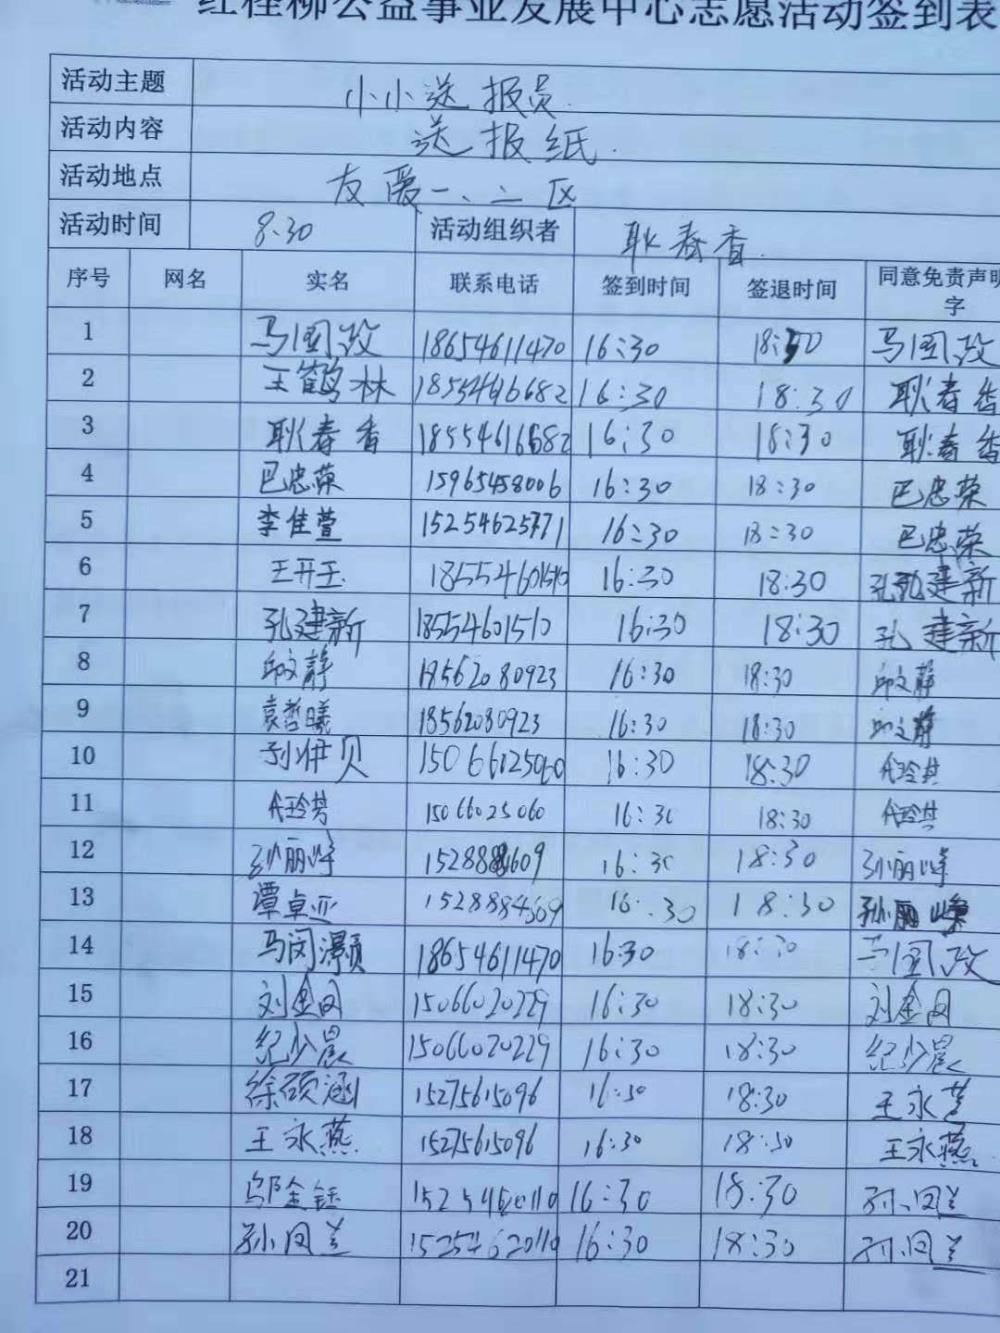 红柽柳公益事业发展中心志愿活动签到表
活动主题 小小送报员.
活动内容 送报纸.
活动地点 友爱一、二区
活动时间 8:30 活动组织者 耿春香
序号 网名 实名 联系电话 签到时间 签退时间 同意免责声明
字
1 马国政 18654611470 16:30 马国政
2 王鹤林 16:30 18:30 耿春香
3 耿春香 18554616682 16:30 18:30 耿春香
4 巴忠荣 15965458006 16:30 18:30 巴忠荣
5 李佳萱 15254625771 16:30 18:30 巴忠荣
6 王开玉 16:30 18:30 孔建新
7 孔建新 18554601510 16:30 18:30 孔建新
8 邱文静 18562080923 16:30 18:30 邱文静
9 袁哲曦 18562080923 16:30 18:30 邱文静
10 15066025060 16:30 18:30
11 15066025060 16:30 18:30
12 孙丽峰 16:30 18:30 孙丽峰
13 谭卓亚 15288884609 16:30 18:30 孙丽峰
14 马闵灏 18654611470 16:30 18:30 马国政
15 刘金凤 15066020229 16:30 18:30 刘金凤
16 纪少晨 15066020229 16:30 18:30 纪少晨
17 徐硕涵 15275615096 16:30 18:30 王永燕
18 王永燕 15275615096 16:30 18:30 王永燕
19 16:30 18:30 孙凤兰
20 孙凤兰 15254620110 16:30 18:30 孙凤兰
21